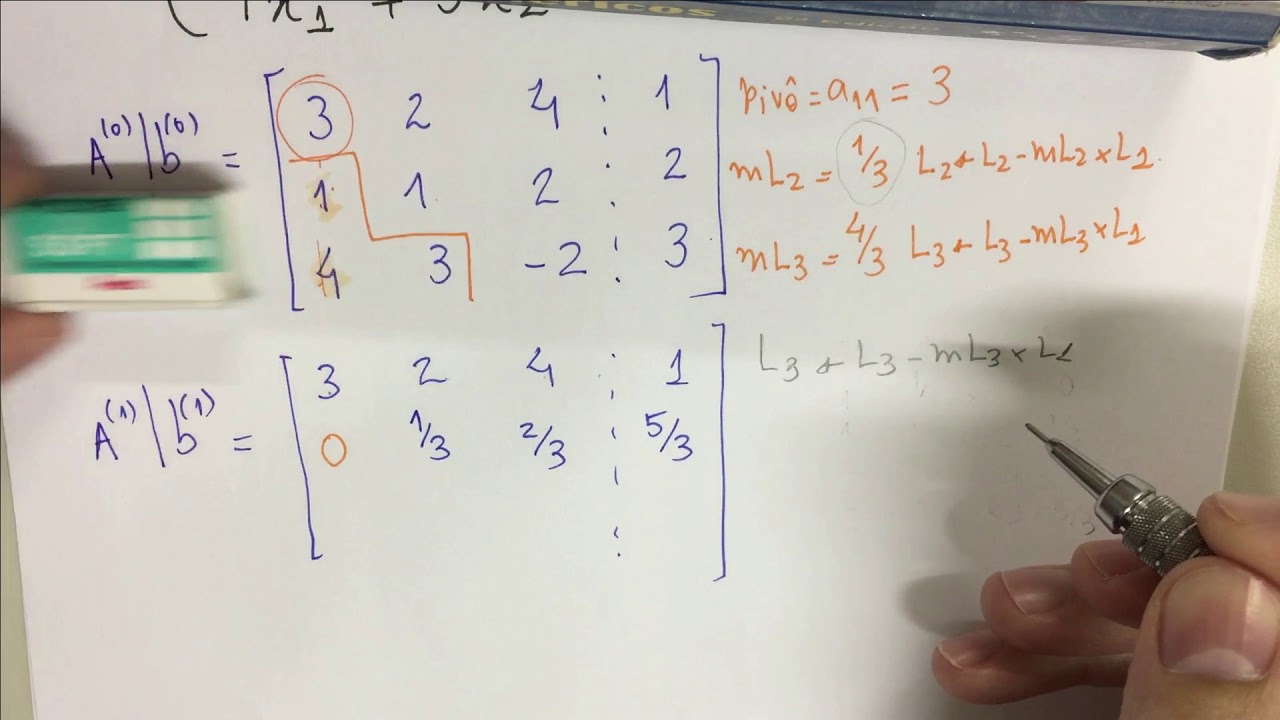 x₁ +
A⁽⁰⁾|b⁽⁰⁾ =
3 2 4 : 1
1 1 2 : 2
4 3 -2 : 3
pivô = a₁₁ = 3
mL₂ = 1/3 L₂ ← L₂ - mL₂ × L₁
mL₃ = 4/3 L₃ ← L₃ - mL₃ × L₁
A⁽¹⁾|b⁽¹⁾ =
3 2 4 : 1
0 1/3 2/3 : 5/3
L₃ ← L₃ - mL₃ × L₁